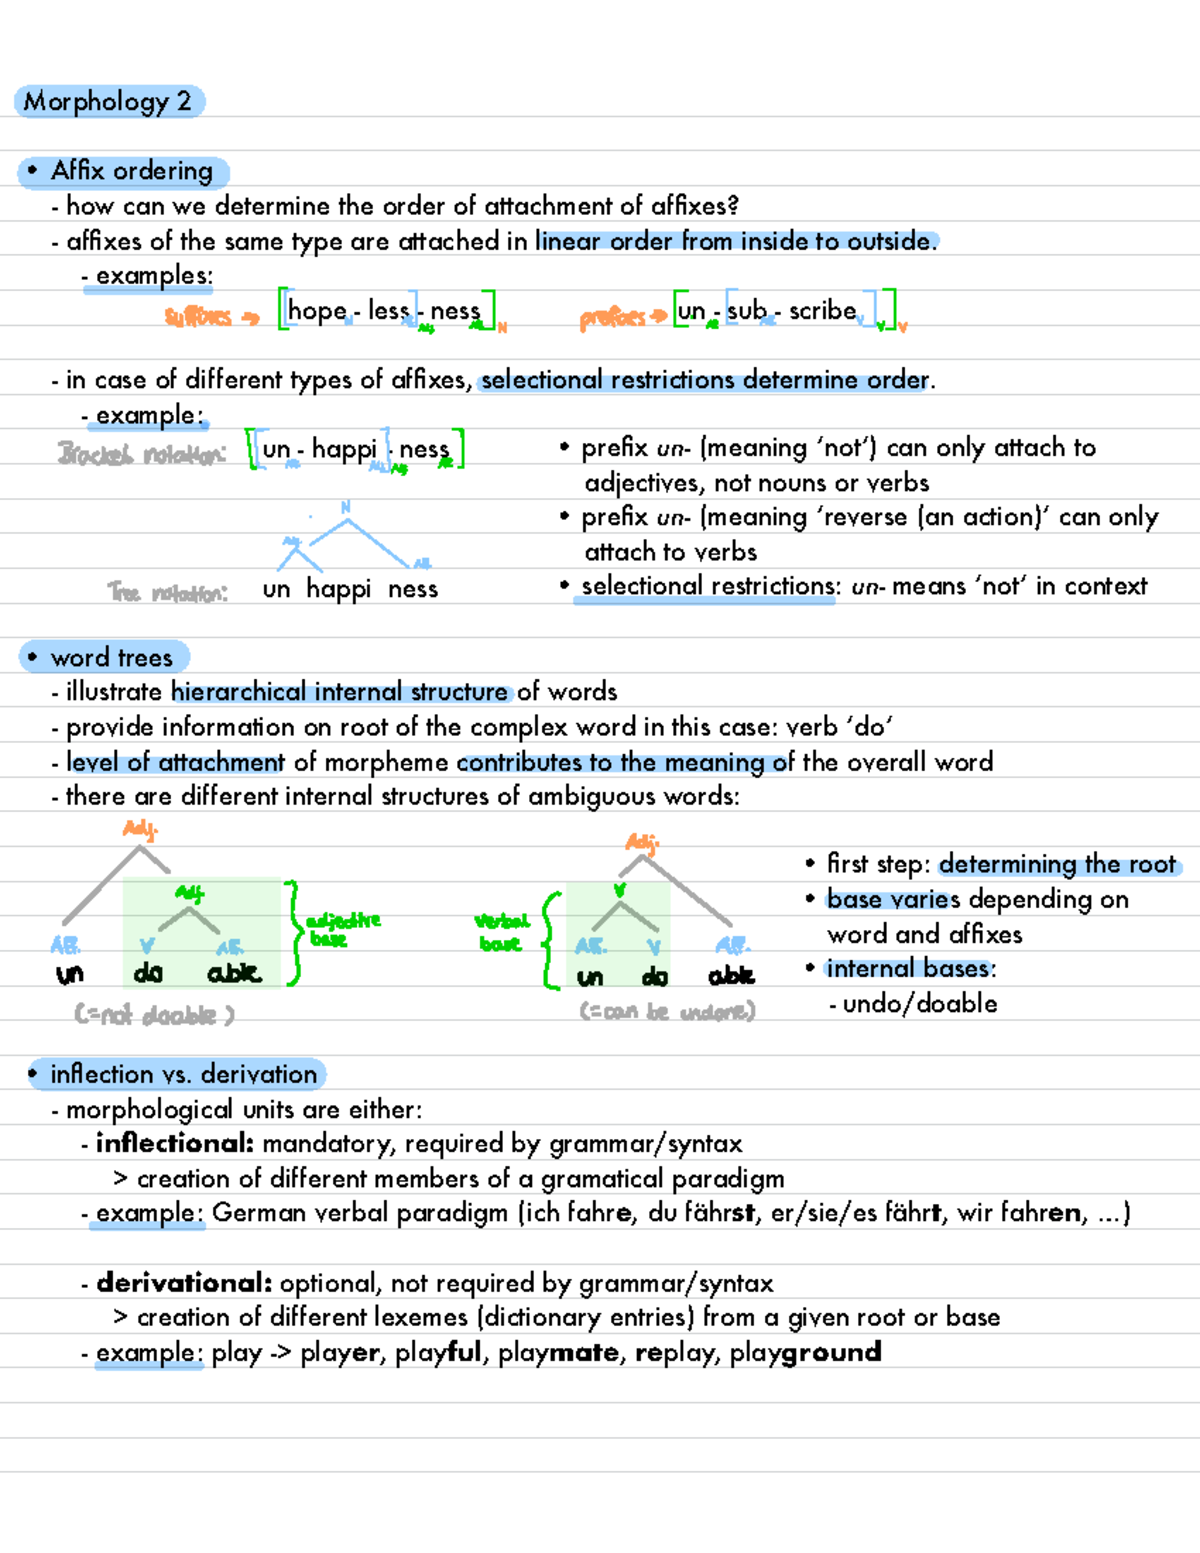 Morphology 2
• Affix ordering
- how can we determine the order of attachment of affixes?
- affixes of the same type are attached in linear order from inside to outside.
- examples:
suffixes → [[hope - less] - ness] N
N Aff. Adj Aff.
prefixes → [un - [sub - scribe]] V
Aff. Aff. V V
- in case of different types of affixes, selectional restrictions determine order.
- example:
Bracket notation: [[un - happi] - ness]
Aff. Adj. Adj Aff.
• prefix un- (meaning ‘not’) can only attach to
adjectives, not nouns or verbs
• prefix un- (meaning ‘reverse (an action)’ can only
attach to verbs
• selectional restrictions: un- means ‘not’ in context
N
Adj.
Aff.
Tree notation: un happi ness
• word trees
- illustrate hierarchical internal structure of words
- provide information on root of the complex word in this case: verb ‘do’
- level of attachment of morpheme contributes to the meaning of the overall word
- there are different internal structures of ambiguous words:
Adj.
Adj.
adjective
base
Aff. V Aff.
un do able
(=not doable)
Adj.
V
verbal
base
Aff. V Aff.
un do able
(=can be undone)
• first step: determining the root
• base varies depending on
word and affixes
• internal bases:
- undo/doable
• inflection vs. derivation
- morphological units are either:
- inflectional: mandatory, required by grammar/syntax
> creation of different members of a gramatical paradigm
- example: German verbal paradigm (ich fahre, du fährst, er/sie/es fährt, wir fahren, ...)
- derivational: optional, not required by grammar/syntax
> creation of different lexemes (dictionary entries) from a given root or base
- example: play -> player, playful, playmate, replay, playground